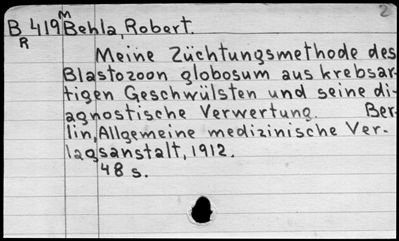 2
M
B 419 Behla, Robert.
R
Meine Züchtungsmethode des
Blastozoon globosum aus krebsar-
tigen Geschwülsten und seine di-
agnostische Verwertung. Ber-
lin, Allgemeine medizinische Ver-
lagsanstalt, 1912.
48 s.